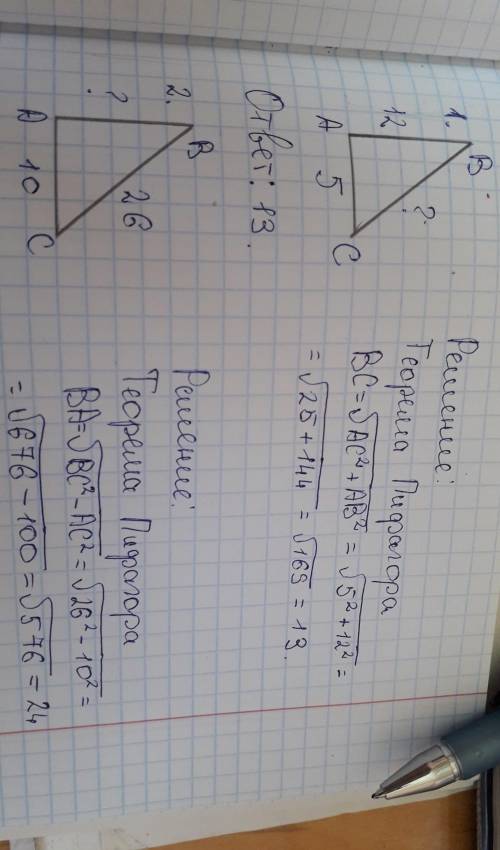 1.
B
12
?
A
5
C
Решение:
Теорема Пифагора
BC=√AC²+AB² = √5²+12² =
= √25+144 = √169 = 13.
Ответ: 13.
2.
B
?
26
A
10
C
Решение:
Теорема Пифагора
BA=√BC²-AC² = √26²-10² =
= √676-100 = √576 = 24